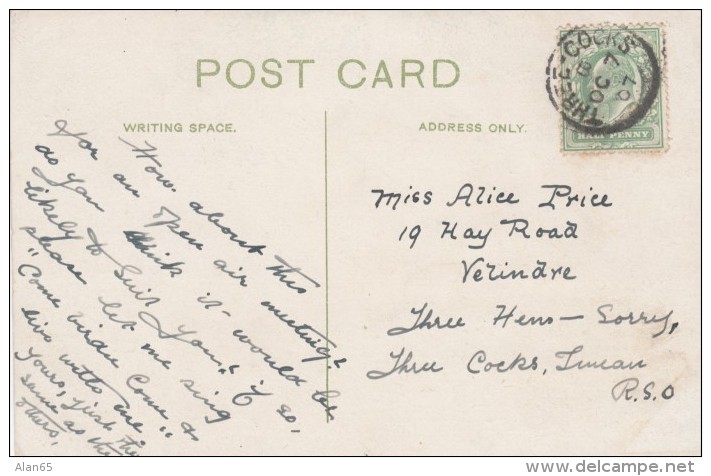 POST CARD
WRITING SPACE.
ADDRESS ONLY.
THREE-COCKS
HALF PENNY
How about this
for an open air meeting?
as you think it would be
likely to suit you. If so,
please let me sing
"Come birdie come &
live with me"
Yours, just the
same as the
others,
Miss Alice Price
19 Hay Road
Velindre
Three Hens — Sorry,
Three Cocks,
R.S.O
Alan65
http://www.delcampe.net